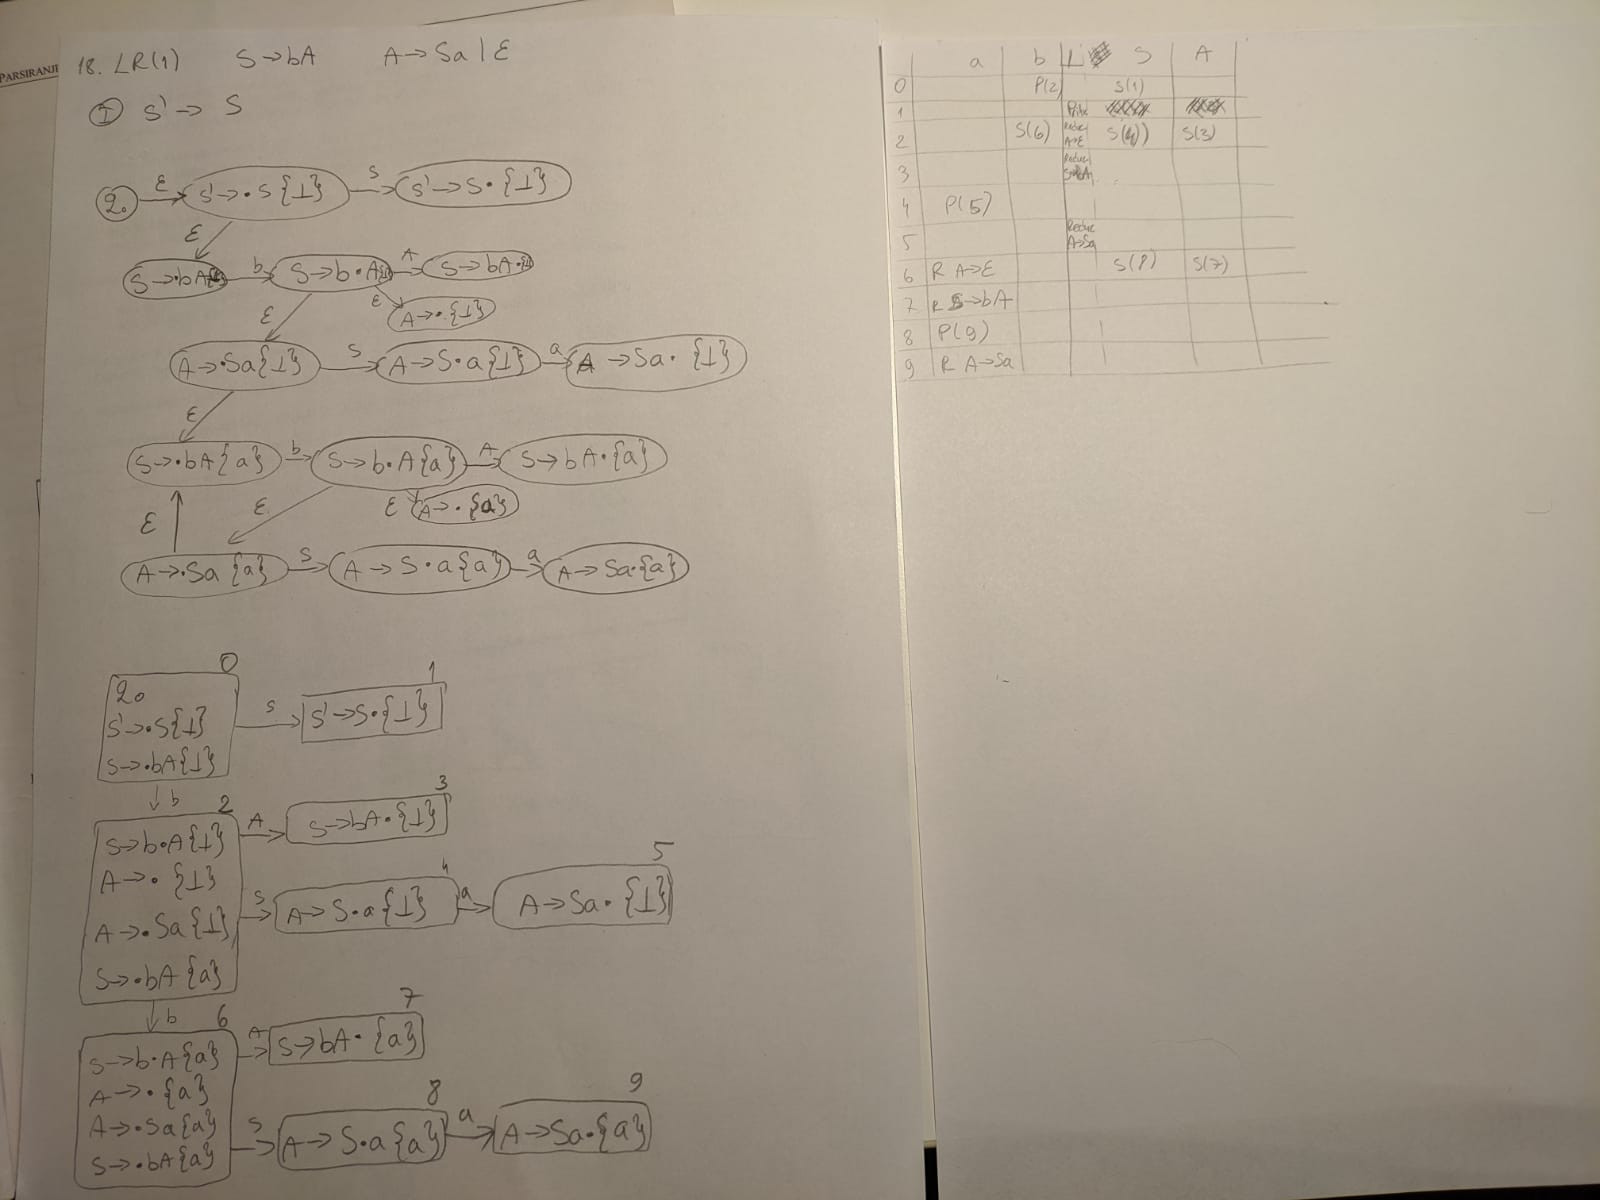 PARSIRANJE
18. LR(1) S→bA A→Sa | ε
① S' → S
q₀ ε S'→•S{⊥} S S'→S•{⊥}
ε
S→•bA{⊥} b S→b•A{⊥} A S→bA•{⊥}
ε ε A→•{⊥}
A→•Sa{⊥} S A→S•a{⊥} a A→Sa•{⊥}
ε
S→•bA{a} b S→b•A{a} A S→bA•{a}
ε ε ε A→•{a}
A→•Sa{a} S A→S•a{a} a A→Sa•{a}
0
q₀
S'→•S{⊥}
S→•bA{⊥}
S
1
S'→S•{⊥}
b
2
S→b•A{⊥}
A→•{⊥}
A→•Sa{⊥}
S→•bA{a}
A
3
S→bA•{⊥}
S
4
A→S•a{⊥}
a
5
A→Sa•{⊥}
b
6
S→b•A{a}
A→•{a}
A→•Sa{a}
S→•bA{a}
A
7
S→bA•{a}
S
8
A→S•a{a}
a
9
A→Sa•{a}
a b ⊥ S A
0 P(2) S(1)
1
2 S(6) Reduc A→ε S(4) S(3)
3 Reduc S→bA
4 P(5)
5 Reduc A→Sa
6 R A→ε S(8) S(7)
7 R S→bA
8 P(9)
9 R A→Sa